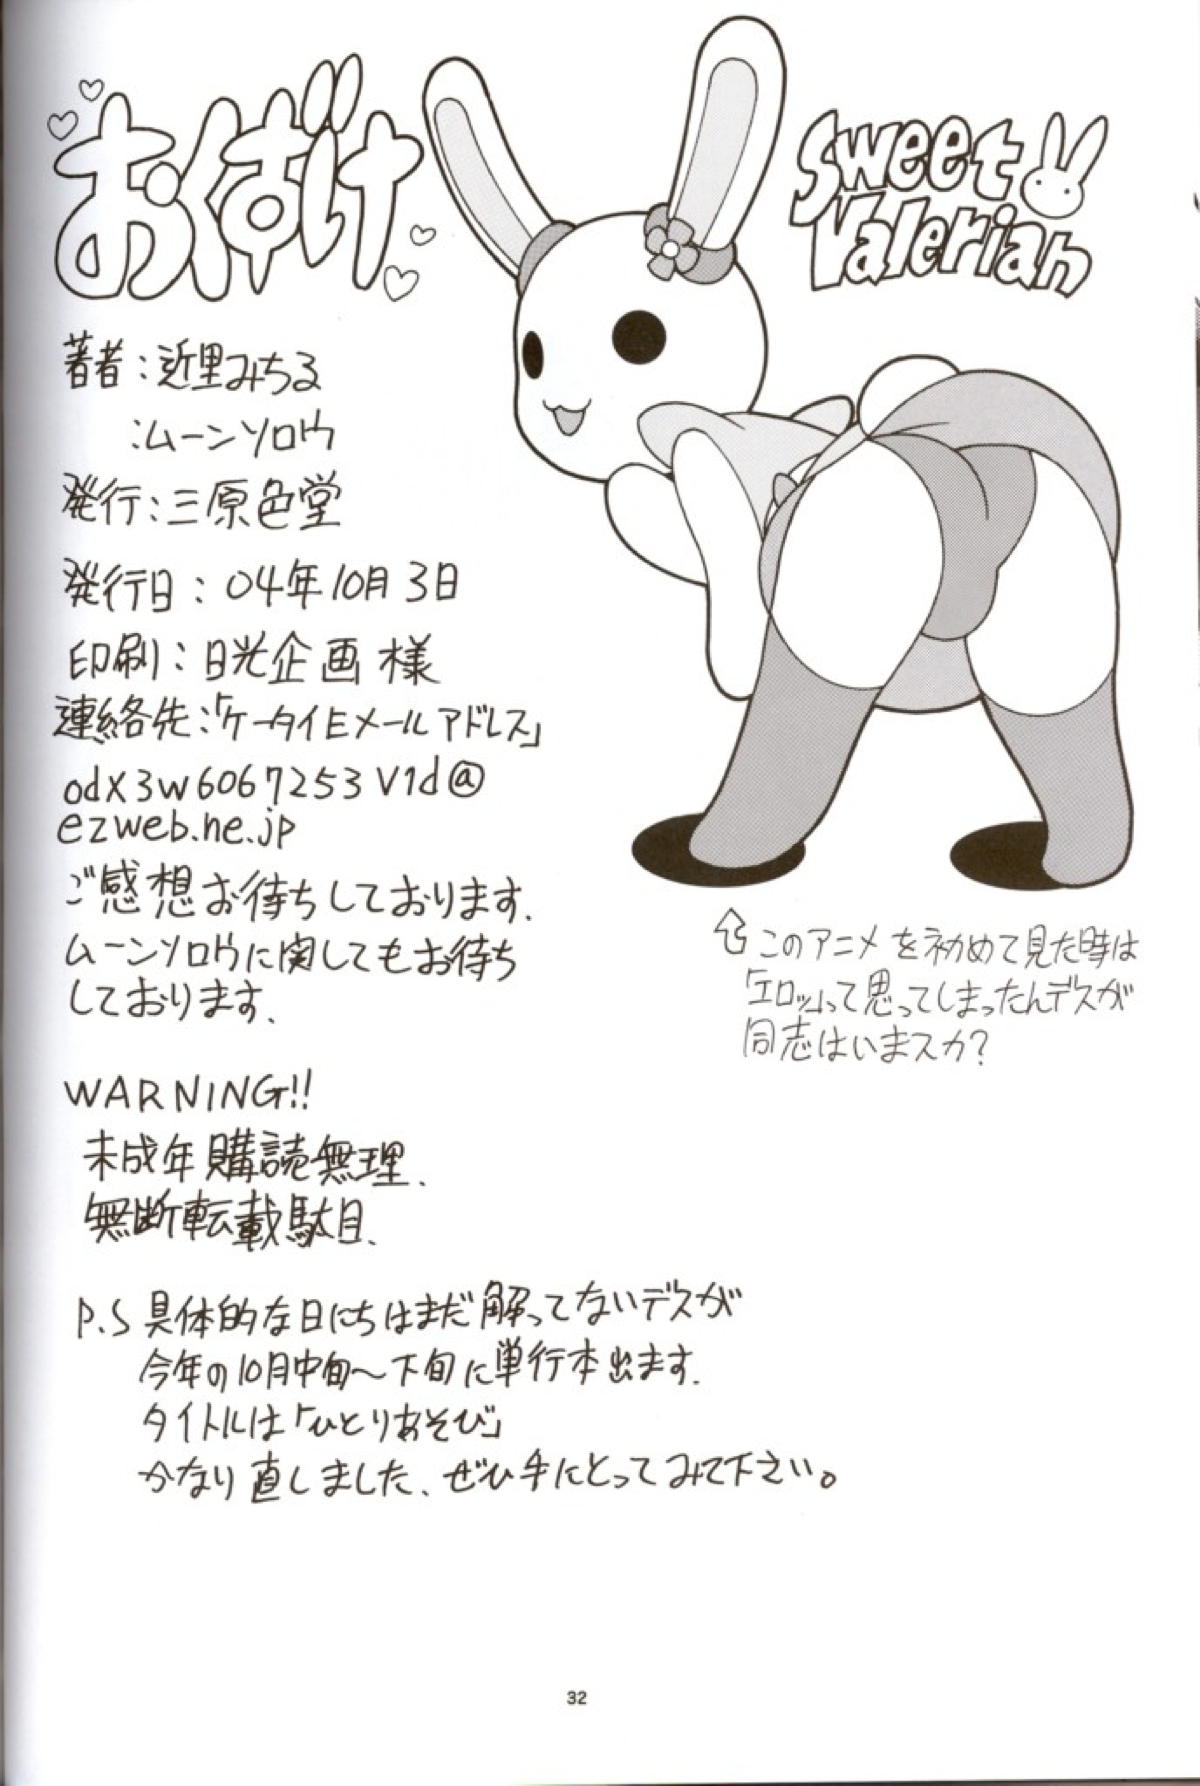 おくずけ
Sweet
Valerian
著者：近里みちる
：ムーンソロウ
発行：三原色堂
発行日：04年10月3日
印刷：日光企画 様
連絡先：「ケータイEメールアドレス」
odx3w6067253v1d@
ezweb.ne.jp
ご感想お待ちしております．
ムーンソロウに関してもお待ち
しております．
⇧このアニメを初めて見た時は
「エロッ」って思ってしまったんデスが
同志はいまスカ？
WARNING!!
未成年購読無理．
無断転載駄目．
P.S 具体的な日にちはまだ解ってないデスが
今年の10月中旬～下旬に単行本出ます．
タイトルは「ひとりあそび」
かなり直しました．ぜひ手にとってみて下さい。
32